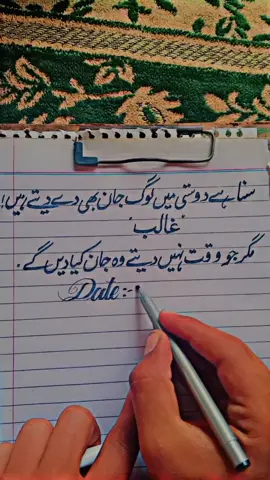 سنا ہے دوستی میں لوگ جان بھی دے دیتے ہیں!
"غالب"
مگر جو وقت نہیں دیتے وہ جان کیا دیں گے.
Date:-